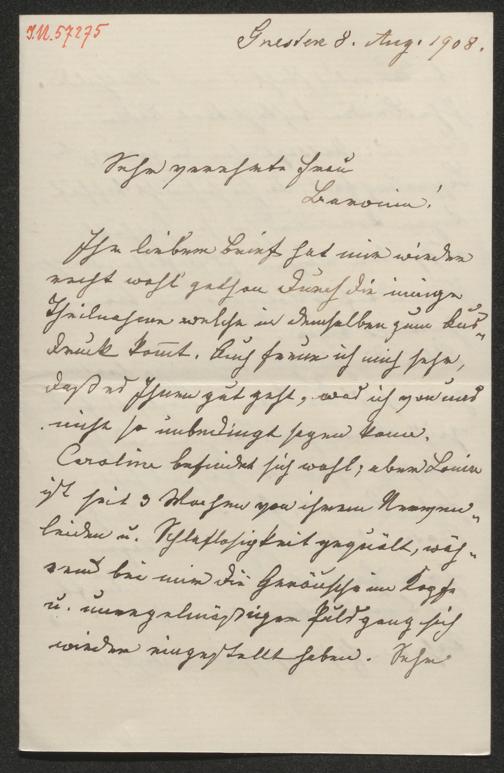 I.N. 57275
Gresten 8. Aug. 1908.
Sehr verehrte Frau
Baronin!
Ihr lieber Brief hat mir wieder
recht wohl gethan durch die innige
Theilnahme welche in demselben zum Aus-
druck kom̅t. Auch freue ich mich sehr,
daß es Ihnen gut geht, was ich von uns
nicht so unbedingt sagen kann.
Caroline befindet sich wohl; aber Louise
ist seit 3 Wochen von ihrem Nerven-
leiden u. Schlaflosigkeit gequält, wäh-
rend bei mir die Geräusche im Kopfe
u. unregelmäßiger Pulsgang sich
wieder eingestellt haben. Sehr